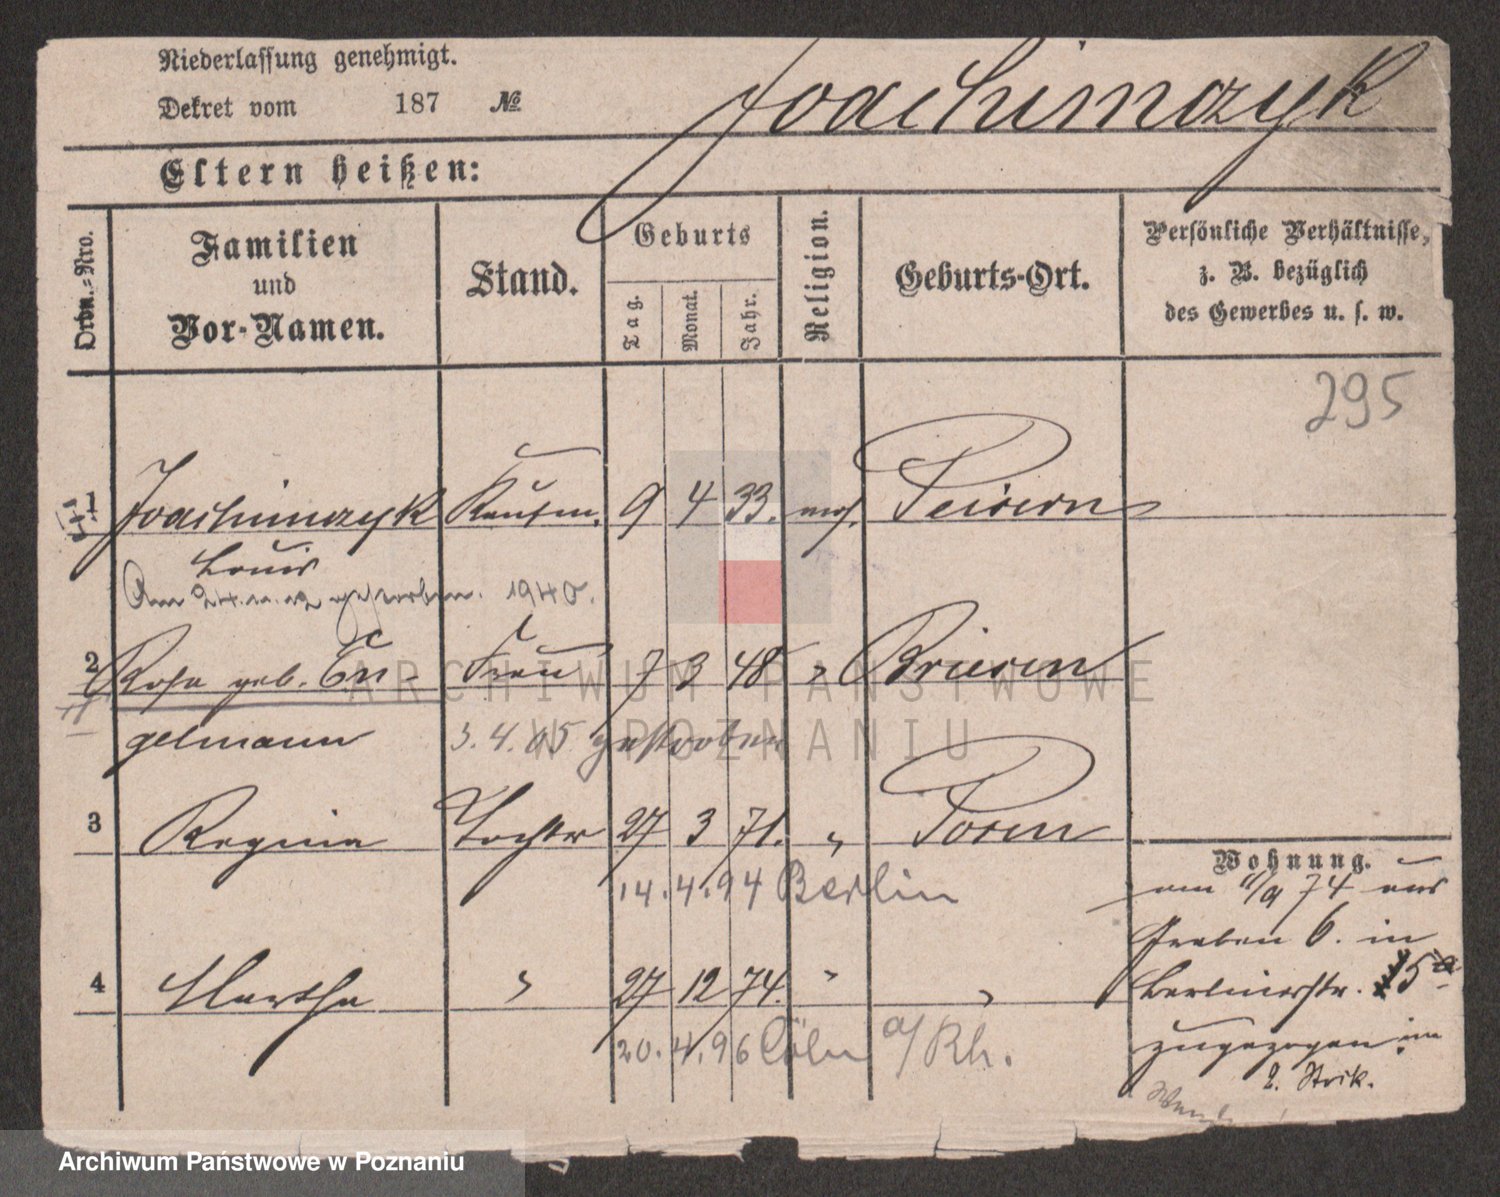 Niederlassung genehmigt.
Dekret vom 187 №
Joachimczyk
Eltern heißen:
Ordn.-Nro.
Familien und Vor-Namen.
Stand.
Geburts
Tag.
Monat.
Jahr.
Religion.
Geburts-Ort.
Persönliche Verhältnisse,
z. B. bezüglich
des Gewerbes u. s. w.
295
1 Joachimczyk Kaufm. 9 4 33. mos. Peisern
Louis
Am 24. gestorben. 1940.
2 Rosa geb. En- Frau 7 3 48 " Briesen
gelmann 3. 4. 05 gestorben
3 Regina Tochter 27 3 71. " Posen
14. 4. 94 Berlin
Wohnung.
am 11/9 74 aus
Graben 6. in
4 Martha " 27 12 74. " "
Berlinerstr. 15
20. 4. 96 Cöln a/Rh.
zugezogen im
2. Stck.
ARCHIWUM PAŃSTWOWE
W POZNANIU
Archiwum Państwowe w Poznaniu